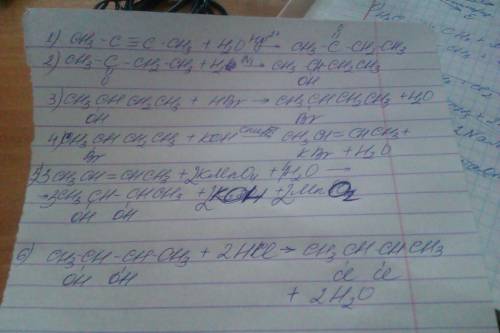 O
1) CH3-C≡C-CH3 + H2O Hg2+→ CH3-C-CH2-CH3
2) CH3-C-CH2-CH3 + H2 Ni→ CH3CHCH2CH3
O OH
3) CH3CHCH2CH3 + HBr → CH3CHCH2CH3 + H2O
OH Br
4) CH3CHCH2CH3 + KOH спирт→ CH3CH=CHCH3 +
Br KBr + H2O
5) 3CH3CH=CHCH3 + 2KMnO4 + 4H2O →
→ 3CH3CH-CHCH3 + 2KOH + 2MnO2
OH OH
6) CH3-CH-CH-CH3 + 2HCl → CH3CH-CHCH3
OH OH Cl Cl
+ 2H2O